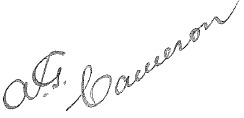 A.G. Cameron